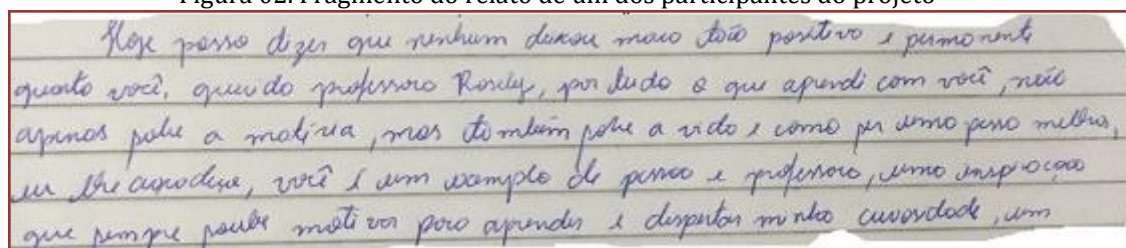 Figura 02: Fragmento do relato de um dos participantes do projeto
Hoje posso dizer que nenhum deixou tão positivo e permanente
quanto você, querido professora Rosely, por tudo o que aprendi com você, não
apenas sobre a matéria, mas também sobre a vida e como ser uma melhor,
eu lhe agradeço, você é um exemplo de pessoa e professora, uma inspiração
que sempre soube motivar para aprender e despertar minha curiosidade, um